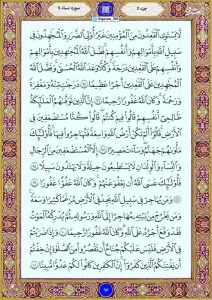 سوره نساء ٤
جزء ٥
لَّا يَسْتَوِي الْقَاعِدُونَ مِنَ الْمُؤْمِنِينَ غَيْرُ أُولِي الضَّرَرِ وَالْمُجَاهِدُونَ فِي
سَبِيلِ اللَّهِ بِأَمْوَالِهِمْ وَأَنفُسِهِمْ فَضَّلَ اللَّهُ الْمُجَاهِدِينَ بِأَمْوَالِهِمْ
وَأَنفُسِهِمْ عَلَى الْقَاعِدِينَ دَرَجَةً وَكُلًّا وَعَدَ اللَّهُ الْحُسْنَىٰ وَفَضَّلَ اللَّهُ
الْمُجَاهِدِينَ عَلَى الْقَاعِدِينَ أَجْرًا عَظِيمًا ﴿٩٥﴾ دَرَجَاتٍ مِّنْهُ وَمَغْفِرَةً
وَرَحْمَةً وَكَانَ اللَّهُ غَفُورًا رَّحِيمًا ﴿٩٦﴾ إِنَّ الَّذِينَ تَوَفَّاهُمُ الْمَلَائِكَةُ
ظَالِمِي أَنفُسِهِمْ قَالُوا فِيمَ كُنتُمْ قَالُوا كُنَّا مُسْتَضْعَفِينَ فِي
الْأَرْضِ قَالُوا أَلَمْ تَكُنْ أَرْضُ اللَّهِ وَاسِعَةً فَتُهَاجِرُوا فِيهَا فَأُولَٰئِكَ
مَأْوَاهُمْ جَهَنَّمُ وَسَاءَتْ مَصِيرًا ﴿٩٧﴾ إِلَّا الْمُسْتَضْعَفِينَ مِنَ الرِّجَالِ
وَالنِّسَاءِ وَالْوِلْدَانِ لَا يَسْتَطِيعُونَ حِيلَةً وَلَا يَهْتَدُونَ سَبِيلًا ﴿٩٨﴾
فَأُولَٰئِكَ عَسَى اللَّهُ أَن يَعْفُوَ عَنْهُمْ وَكَانَ اللَّهُ عَفُوًّا غَفُورًا ﴿٩٩﴾
وَمَن يُهَاجِرْ فِي سَبِيلِ اللَّهِ يَجِدْ فِي الْأَرْضِ مُرَاغَمًا كَثِيرًا وَسَعَةً
وَمَن يَخْرُجْ مِن بَيْتِهِ مُهَاجِرًا إِلَى اللَّهِ وَرَسُولِهِ ثُمَّ يُدْرِكْهُ الْمَوْتُ
فَقَدْ وَقَعَ أَجْرُهُ عَلَى اللَّهِ وَكَانَ اللَّهُ غَفُورًا رَّحِيمًا ﴿١٠٠﴾ وَإِذَا ضَرَبْتُمْ
فِي الْأَرْضِ فَلَيْسَ عَلَيْكُمْ جُنَاحٌ أَن تَقْصُرُوا مِنَ الصَّلَاةِ إِنْ خِفْتُمْ
أَن يَفْتِنَكُمُ الَّذِينَ كَفَرُوا إِنَّ الْكَافِرِينَ كَانُوا لَكُمْ عَدُوًّا مُّبِينًا ﴿١٠١﴾